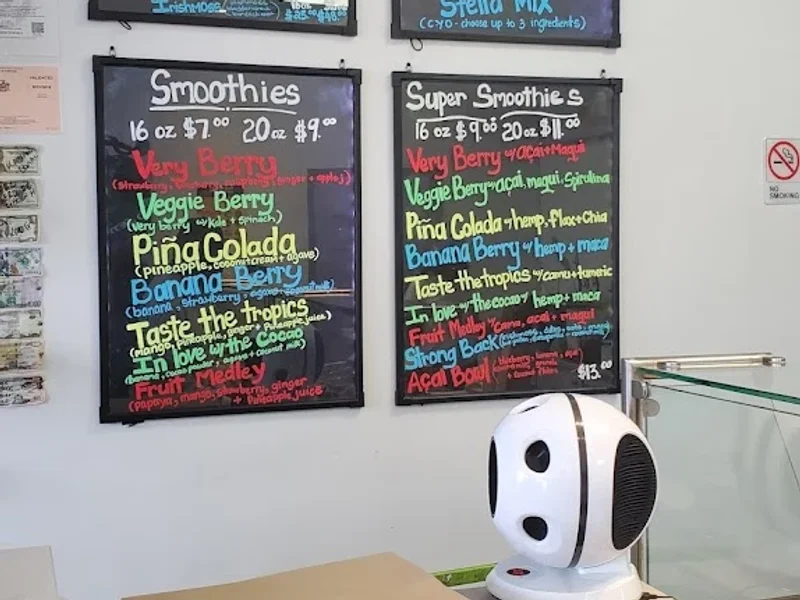 Irishmoss
Stella Mix
(CYO - choose up to 3 ingredients)
Smoothies
16 oz $7.00 20 oz $9.00
Very Berry
Veggie Berry
(very berry w/ Kale + Spinach)
Piña Colada
(pineapple, coconut cream + agave)
Banana Berry
(banana, strawberry, agave + coconut milk)
Taste the tropics
(mango, pineapple, ginger + Pineapple juice)
In love w/ the Cocao
(banana, cocao powder + agave + coconut milk)
Fruit Medley
(papaya, mango, strawberry, ginger
+ Pineapple juice)
Super Smoothies
16 oz $9.00 20 oz $11.00
Very Berry w/ açai + Maqui
Veggie Berry w/ açai, maqui, Spirulina
Piña Colada w/ hemp, flax + Chia
Banana Berry w/ hemp + maca
Taste the tropics w/ camu + tumeric
In love w/ the cocao w/ hemp + maca
Fruit Medley w/ Camu, acai + maqui
Strong Back
Açai Bowl $13.00
NO
SMOKING